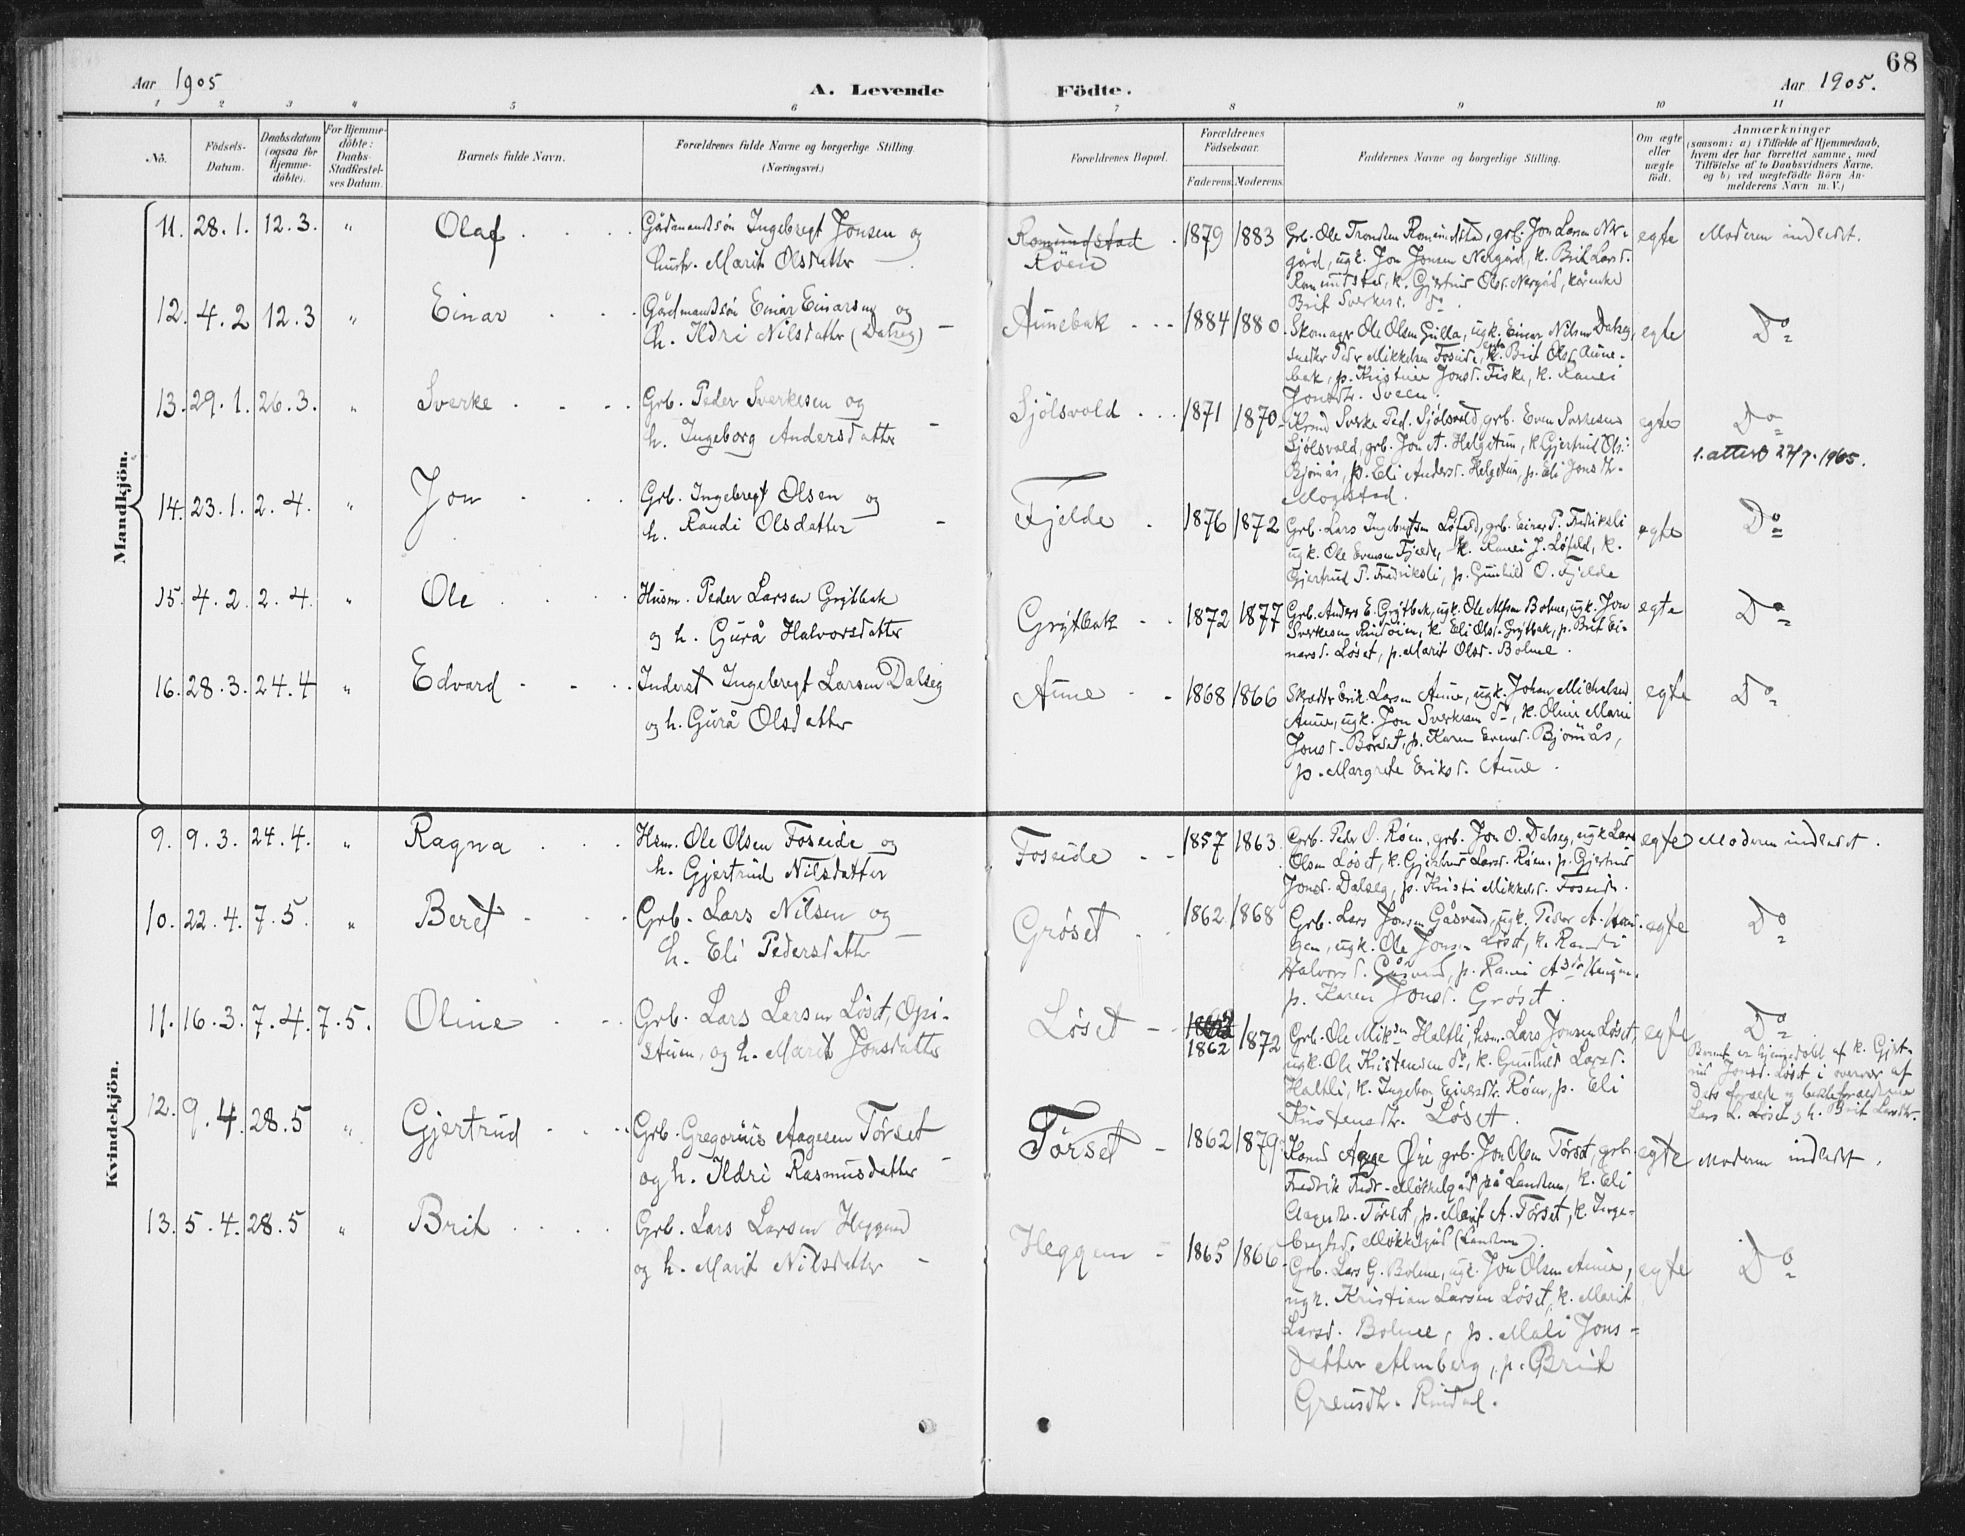 68
Aar 1905
A. Levende
Födte.
Aar 1905.
1 2 3 4 5 6 7 8 9 10 11
No.
Födsels-
Datum.
Daabsdatum
(ogsaa for
Hjemme-
döbte).
For Hjemme-
döbte:
Daabs-
Stadfæstel-
ses Datum.
Barnets fulde Navn.
Forældrenes fulde Navne og borgerlige Stilling.
(Næringsvei.)
Forældrenes Bopæl.
Forældrenes
Födselsaar.
Faderens. Moderens.
Faddernes Navne og borgerlige Stilling.
Om ægte
eller
uægte
födt.
Anmærkninger
(saasom: a) i Tilfælde af Hjemmedaab,
hvem der har forrettet samme, med
Tilföielse af to Daabsvidners Navne,
og b) ved uægtefödte Börn An-
melderens Navn m. V.)
Mandkjön.
11. 28.1. 12.3. " Olaf
Gårdmandssön Ingebregt Jonsen og
Hustr. Marit Olsdatter
Romundstad
Röen
1879 1883
Grb. Ole Trondsen Romundstad, grb. Jon Larsen Ner-
gård, ugk. Jon Jonsen Nergård, k. Brit Larsd.
Romundstad, k. Gjertrud Olsd. Nergård,
Brit Sverkesd. do.
egte Moderen indledet.
12. 4.2 12.3 " Einar
Gårdmandssön Einar Einarsen og
h. Ildri Nilsdatter (Dalseg) —
Aunebak
1884 1880
Skomager Ole Olsen Gulla, ugk. Einar Nilsen Dalseg,
snedker Peder Mikkelsen Foseide, k. Brit Olsd. Aune-
bak, p. Kristine Jonsd. Fiske, k. Ranei
Jonsdtr. Sveen.
egte Do
13. 29.1. 26.3. " Sverke
Grb. Peder Sverkesen og
h. Ingeborg Andersdatter —
Sjölsvold
1871 1870
Kmd Sverke Ped. Sjölsvold, grb. Even Sverkesen
Sjölsvold, grb. Jon A. Helgetun, k. Gjertrud Ols.
Bjørnås, p. Eli Andersd. Helgetun, p. Eli Jonsdtr.
Mogstad.
egte Do
1. attest 27/7.1965.
14. 23.1. 2.4. " Jon
Grb. Ingebregt Olsen og
h. Randi Olsdatter —
Fjelde
1876 1872
Grb. Lars Ingebrigtsen Löfald, grb. Einar P. Fredriksli
ugk. Ole Evensen Fjelde, k. Ranei J. Löfald, k.
Gjertrud P. Fredriksli, p. Gunhild O. Fjelde
egte Do
15. 4.2. 2.4. " Ole
Husm. Peder Larsen Grytbak
og h. Gurå Halvorsdatter
Grytbak
1872 1877
Grb. Anders E. Grytbak, ugk. Ole Olsen Bolme, ugk. Jon
Sverkesen Rindöien, k. Eli Olsd. Grytbak, p. Brit Ei-
narsd. Löset, p. Marit Olsd. Bolme.
egte Do
16. 28.3. 24.4 " Edvard
Inderst Ingebregt Larsen Dalseg
og h. Gurå Olsdatter
Aune
1868 1866
Skredder Erik Larsen Aune, ugk. Johan Michalsen
Aune, ugk. Jon Sverkesen do, k. Oline Marie
Jonsd. Börset, p. Karen Evensd. Bjørnås,
p. Margrete Eriksd. Aune.
egte Do
Kvindekjön.
9. 9.3. 24.4. " Ragna
Hsm. Ole Olsen Foseide og
h. Gjertrud Nilsdatter
Foseide
1857 1863
Grb. Peder O. Röen, grb. Jon O. Dalseg, ugk Lars
Olsen Löset, k. Gjertrud Larsd. Röen, p. Gjertrud
Jonsd. Dalseg, p. Kristi Mikkelsd. Foseide.
egte Moderen indledet.
10. 22.4. 7.5. " Beret
Grb. Lars Nilsen og
h. Eli Pedersdatter —
Gröset
1862 1868
Grb. Lars Jonsen Gåsvand, ugk. Peder A. Hau-
gen, ugk. Ole Jonsen Löset, k. Randi
Halvorsd. Gåsvand, p. Ranei Asdr Haugen,
p. Karen Jonsd. Gröset.
egte Do
11. 16.3. 7.4. 7.5. Oline
Grb. Lars Larsen Löset, Opi-
stuen, og h. Marit Jonsdatter
Löset
1862 1872
Grb. Ole Miksn Haltli, hsm. Lars Jonsen Löset,
ugk. Ole Kristensen do, k. Gunhild Larsd.
Haltli, k. Ingebog Einarsdtr. Röen, p. Eli
Kristensdtr. Löset.
egte Do
Barnet er hjemmedöbt af k. Gjert-
rud Jonsd. Löset i overvær af
dets forældre og bedsteforældrene
Lars L. Löset og h. Brit Larsdtr.
12. 9.4. 28.5 " Gjertrud
Grb. Gregorius Aagesen Törset
og h. Ildri Rasmusdatter —
Törset
1862 1879
Kmd Aage Öie grb. Jon Olsen Törset, grb.
Fredrik Fredr. Mökkelgård på Landsem, k. Eli
Aagesdtr. Törset, p. Marit A. Törset, k. Inge-
bregtsd. Mökkelgård (Landsem).
egte Moderen indledet.
13. 5.4. 28.5 " Brit
Grb. Lars Larsen Heggem
og h. Marit Nilsdatter —
Heggem
1865 1866
Grb. Lars G. Bolme, ugk. Jon Olsen Aune,
ugk. Kristian Larsen Löset, k. Marit
Larsd. Bolme, p. Mali Jons-
datter Almberg, p. Brit
Rindal.
egte Do